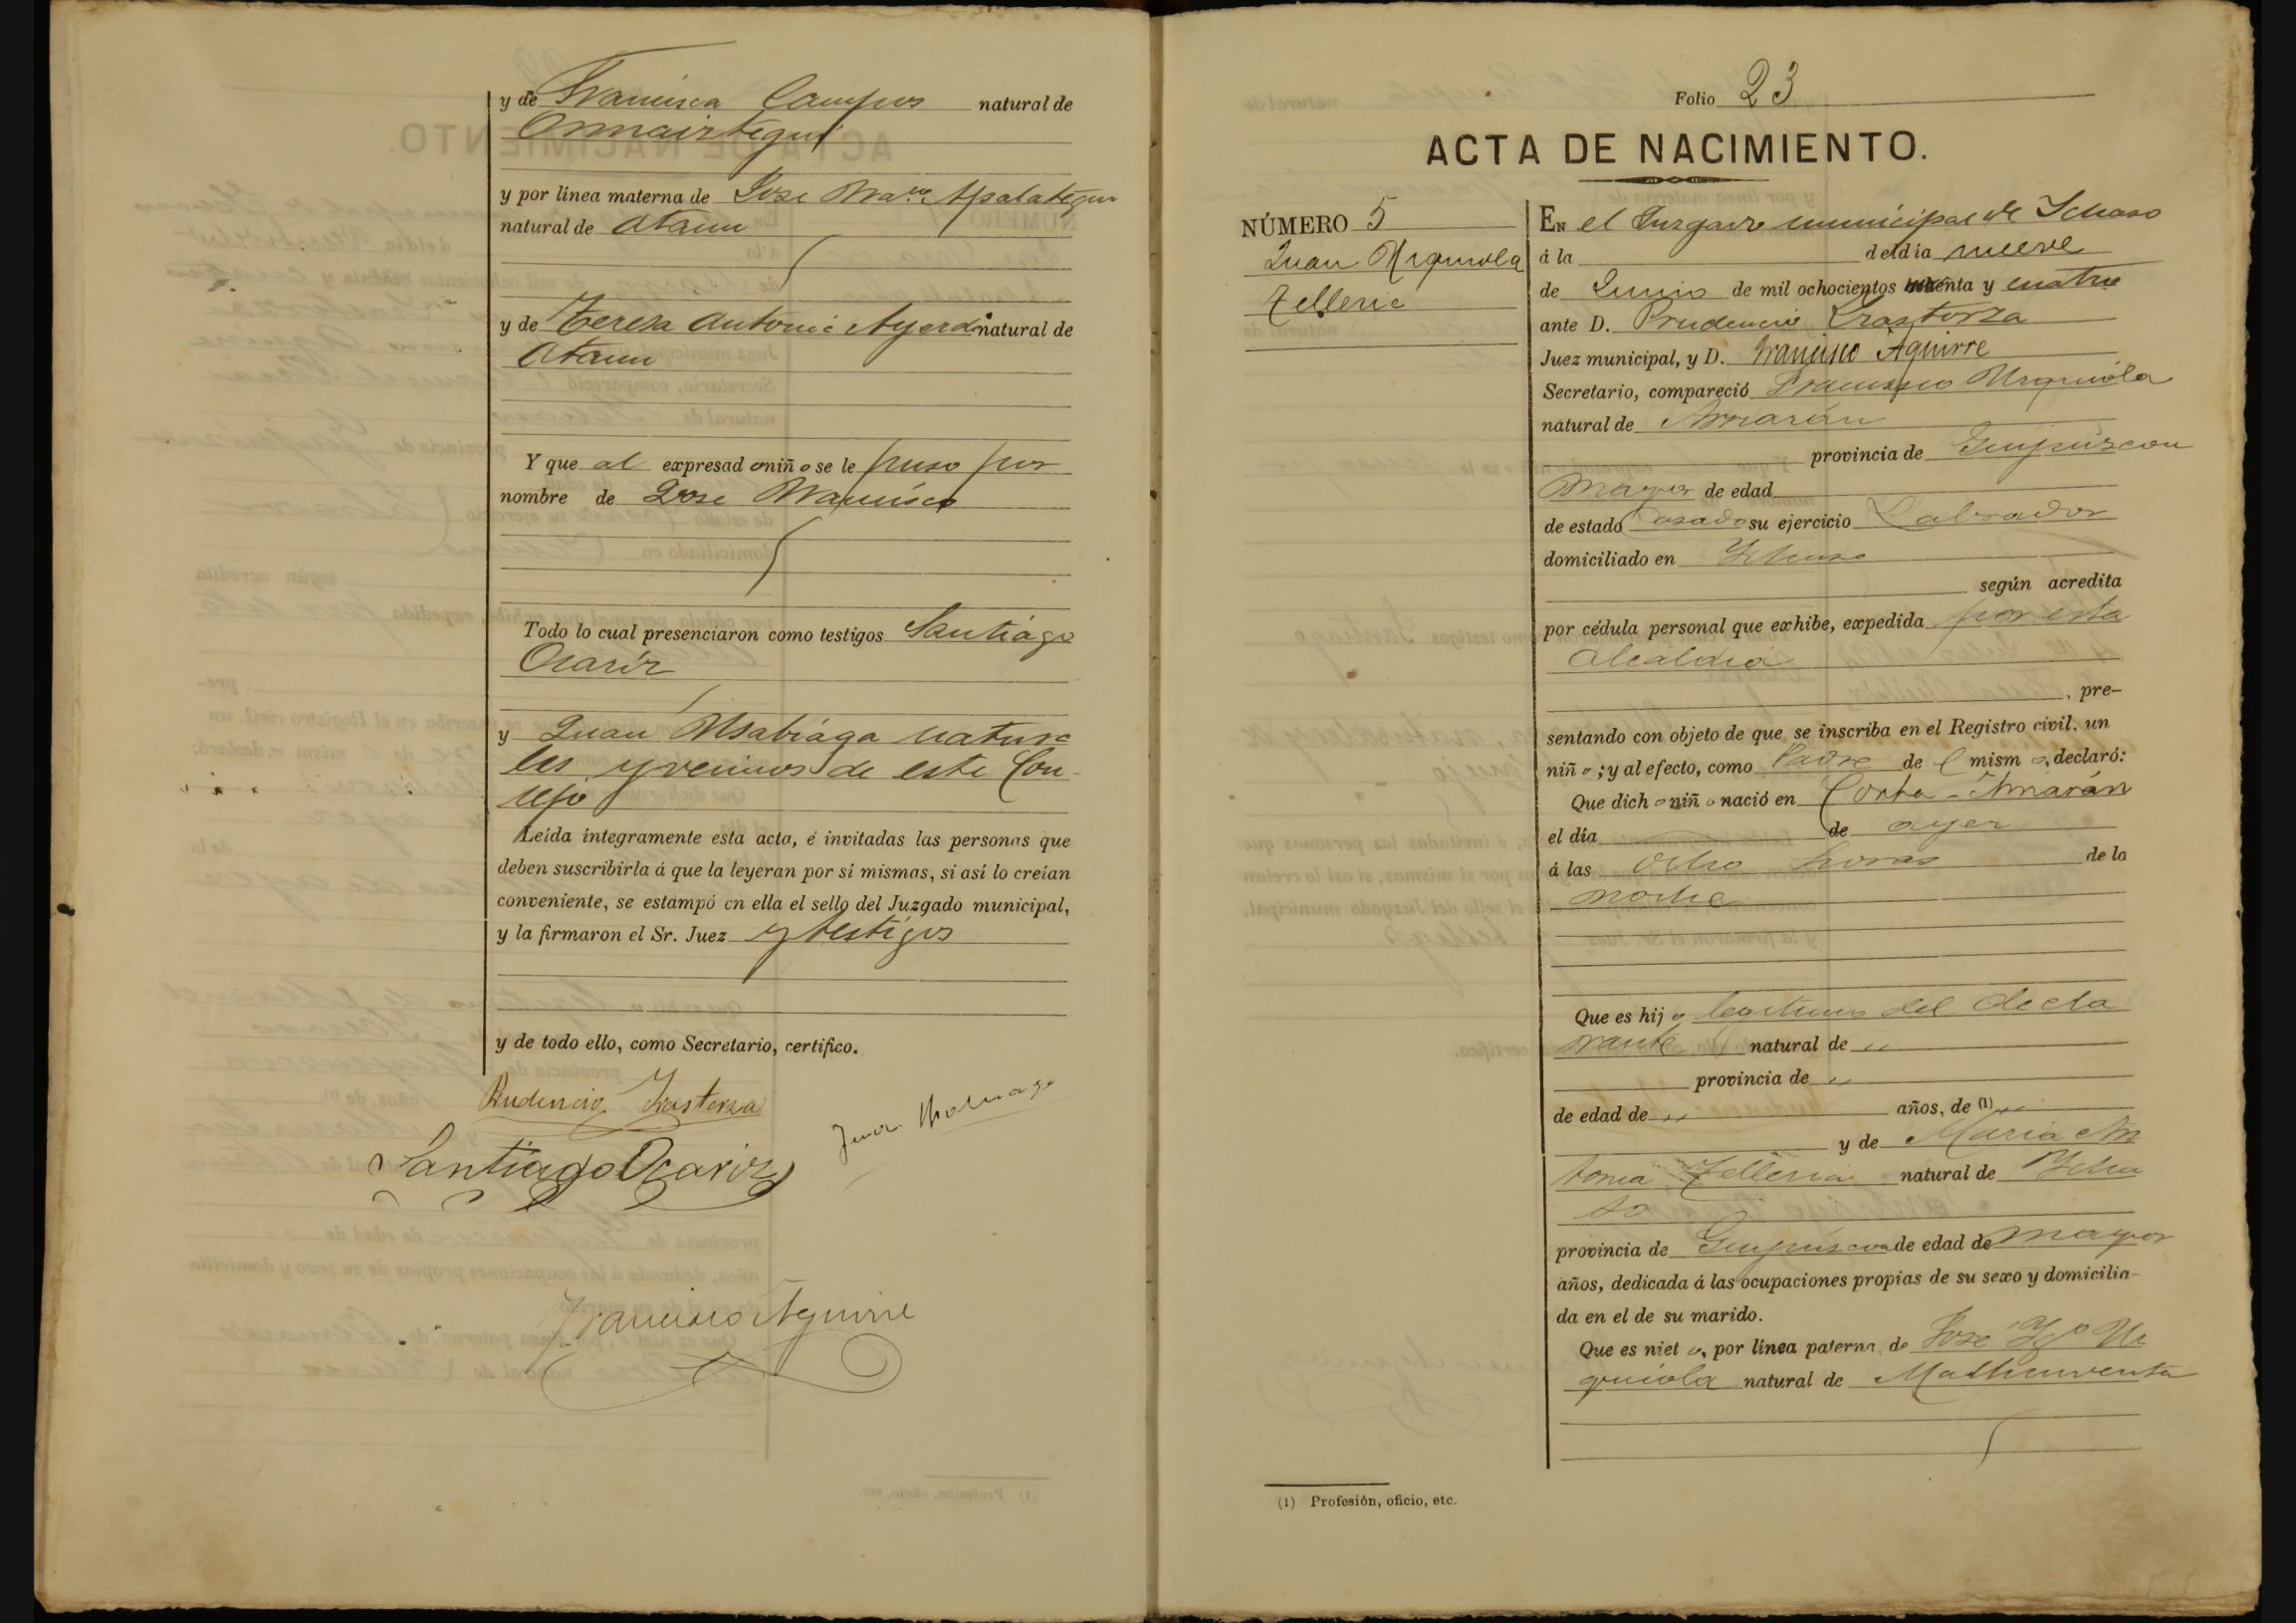 y de Francisca Campos natural de
Ormaiztegui
y por línea materna de Jose Mª Apalategui
natural de Ataun
y de Teresa Antonia Ayerdi natural de
Ataun
Y que al expresad o niñ o se le puso por
nombre de Jose Francisco
Todo lo cual presenciaron como testigos Santiago
Ocariz
y Juan Usabiaga natura
les y vecinos de este Con-
cejo
Leída íntegramente esta acta, é invitadas las personas que
deben suscribirla á que la leyeran por sí mismas, si así lo creían
conveniente, se estampó en ella el sello del Juzgado municipal,
y la firmaron el Sr. Juez y testigos
y de todo ello, como Secretario, certifico.
Prudencio Irastorza
Juan
Santiago Ocariz
Francisco Aguirre
Folio 23
ACTA DE NACIMIENTO.
NÚMERO 5
Juan Urquiola
Telleria
EN el Juzgado municipal de Ichaso
á la del día nueve
de Junio de mil ochocientos noventa y cuatro
ante D. Prudencio Irastorza
Juez municipal, y D. Francisco Aguirre
Secretario, compareció Francisco Urquiola
natural de Arriarán
provincia de Guipúzcoa
mayor de edad
de estado casado su ejercicio Labrador
domiciliado en Ichaso
según acredita
por cédula personal que exhibe, expedida por esta
Alcaldia
, pre-
sentando con objeto de que se inscriba en el Registro civil, un
niñ o ; y al efecto, como Padre de l mism o, declaró:
Que dich o niñ o nació en Arriarán
el día de ayer
á las ocho horas de la
noche
Que es hij o legitimo del decla
rante natural de "
provincia de "
de edad de " años, de (1) "
y de Maria An
tonia Telleria natural de Icha
so
provincia de Guipúzcoa de edad de mayor
años, dedicada á las ocupaciones propias de su sexo y domicilia-
da en el de su marido.
Que es niet o, por línea paterna de Jose Ygº Ur
quiola natural de
(1) Profesión, oficio, etc.